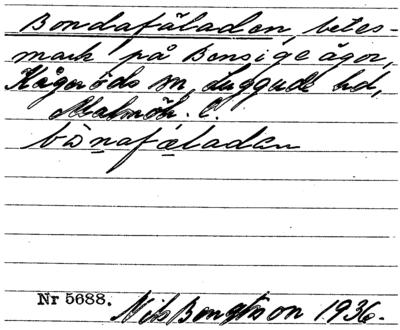 Bondafäladen, betes-
mark på Bensige ägor,
Kågeröds sn, Luggude hd,
Malmöh. l.
bònafæladan
Nr 5688. Nils Bengtsson 1936.